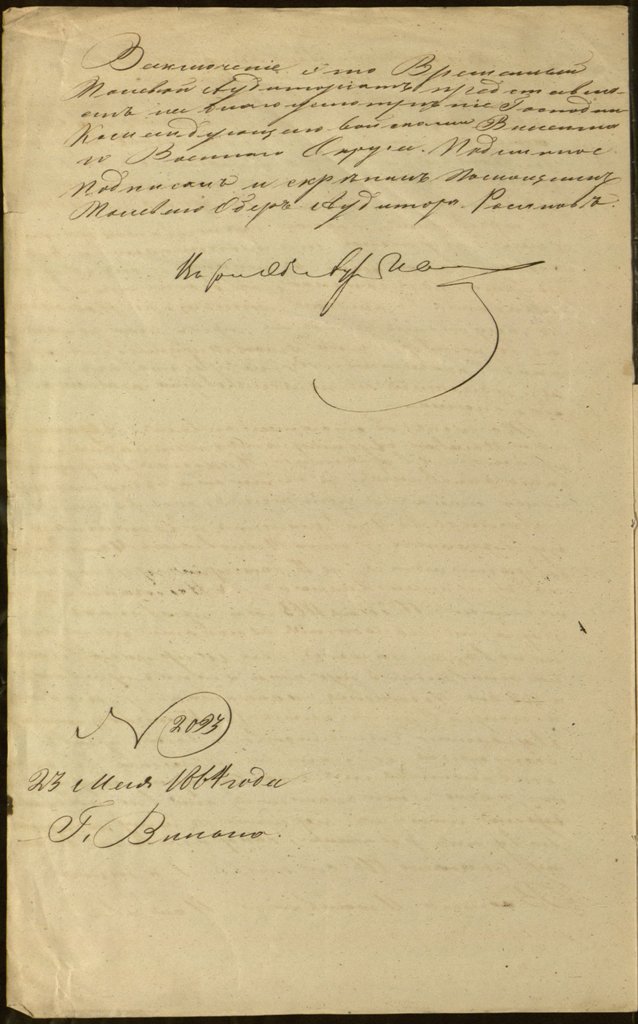 Заключеніе это Временный
Полевой Аудиторіатъ представля-
етъ на благоусмотрѣніе Господина
Командующаго войсками Виленска-
го Военнаго Округа. Подлинное
Подписали и скрѣпилъ Помощникъ
Полеваго Оберъ Аудитора
№ 2093
23 Мая 1864 года
Г. Вильно.